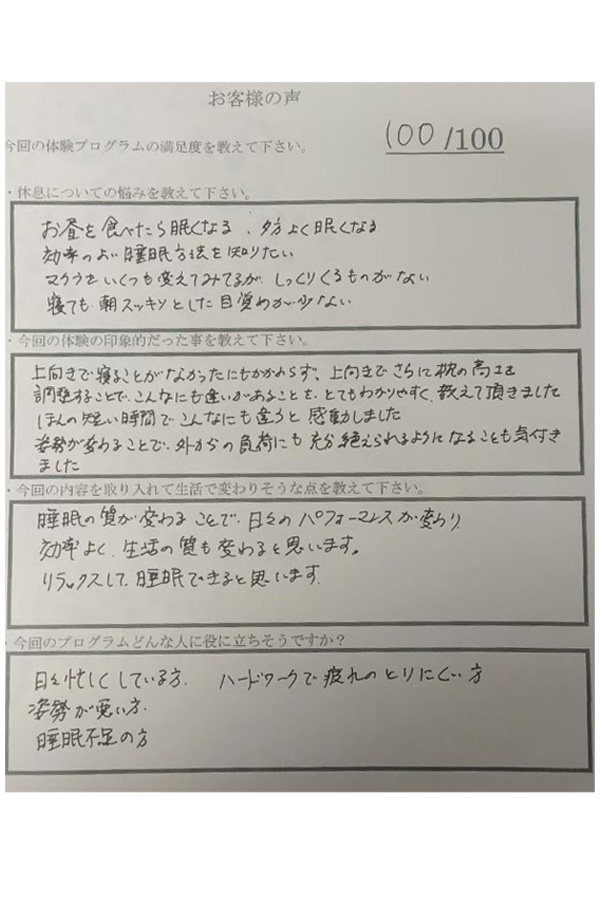 お客様の声
今回の体験プログラムの満足度を教えて下さい。 100/100
・休息についての悩みを教えて下さい。
お昼を食べたら眠くなる、夕方よく眠くなる
効率のよい睡眠方法を知りたい
マクラをいくつも変えてみてるが、しっくりくるものがない
寝ても朝スッキリとした目覚めが少ない
・今回の体験の印象的だった事を教えて下さい。
上向きで寝ることがなかったにもかかわらず、上向きでさらに枕の高さを
調整することで、こんなにも違いがあることを、とてもわかりやすく、教えて頂きました
ほんの短い時間でこんなにも違うと感動しました
姿勢が変わることで、外からの負荷にも充分絶えられるようになることも気付き
ました
・今回の内容を取り入れて生活で変わりそうな点を教えて下さい。
睡眠の質が変わることで、日々のパフォーマンスが変わり
効率よく、生活の質も変わると思います。
リラックスして睡眠できると思います.
・今回のプログラムどんな人に役に立ちそうですか？
日々忙しくしている方. ハードワークで疲れのとりにくい方
姿勢が悪い方.
睡眠不足の方